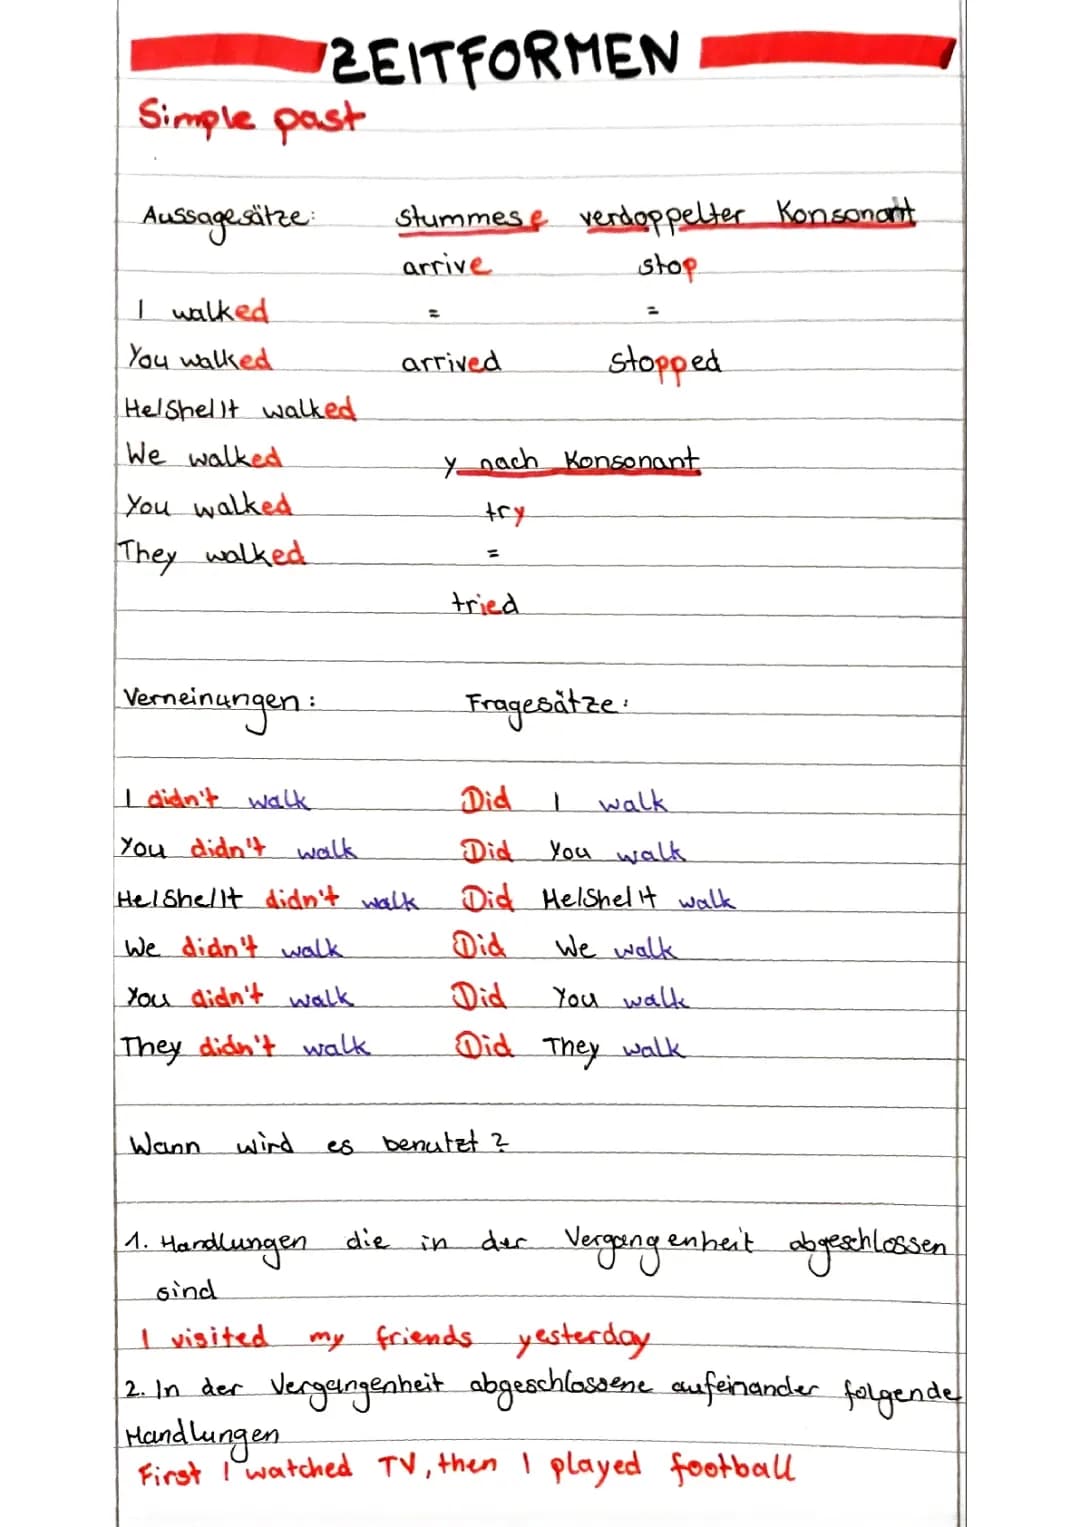 ZEITFORMEN
Simple past
Aussagesätze: stummes e verdoppelter Konsonant
arrive stop
I walked = =
You walked arrived stopped
He/She/It walked
We walked y nach Konsonant
You walked try
They walked =
tried
Verneinungen: Fragesätze:
I didn't walk Did I walk
You didn't walk Did You walk
He/She/It didn't walk Did He/She/It walk
We didn't walk Did We walk
You didn't walk Did You walk
They didn't walk Did They walk
Wann wird es benutzt?
1. Handlungen die in der Vergangenheit abgeschlossen
sind
I visited my friends yesterday
2. In der Vergangenheit abgeschlossene aufeinander folgende
Handlungen
First I watched TV, then I played football